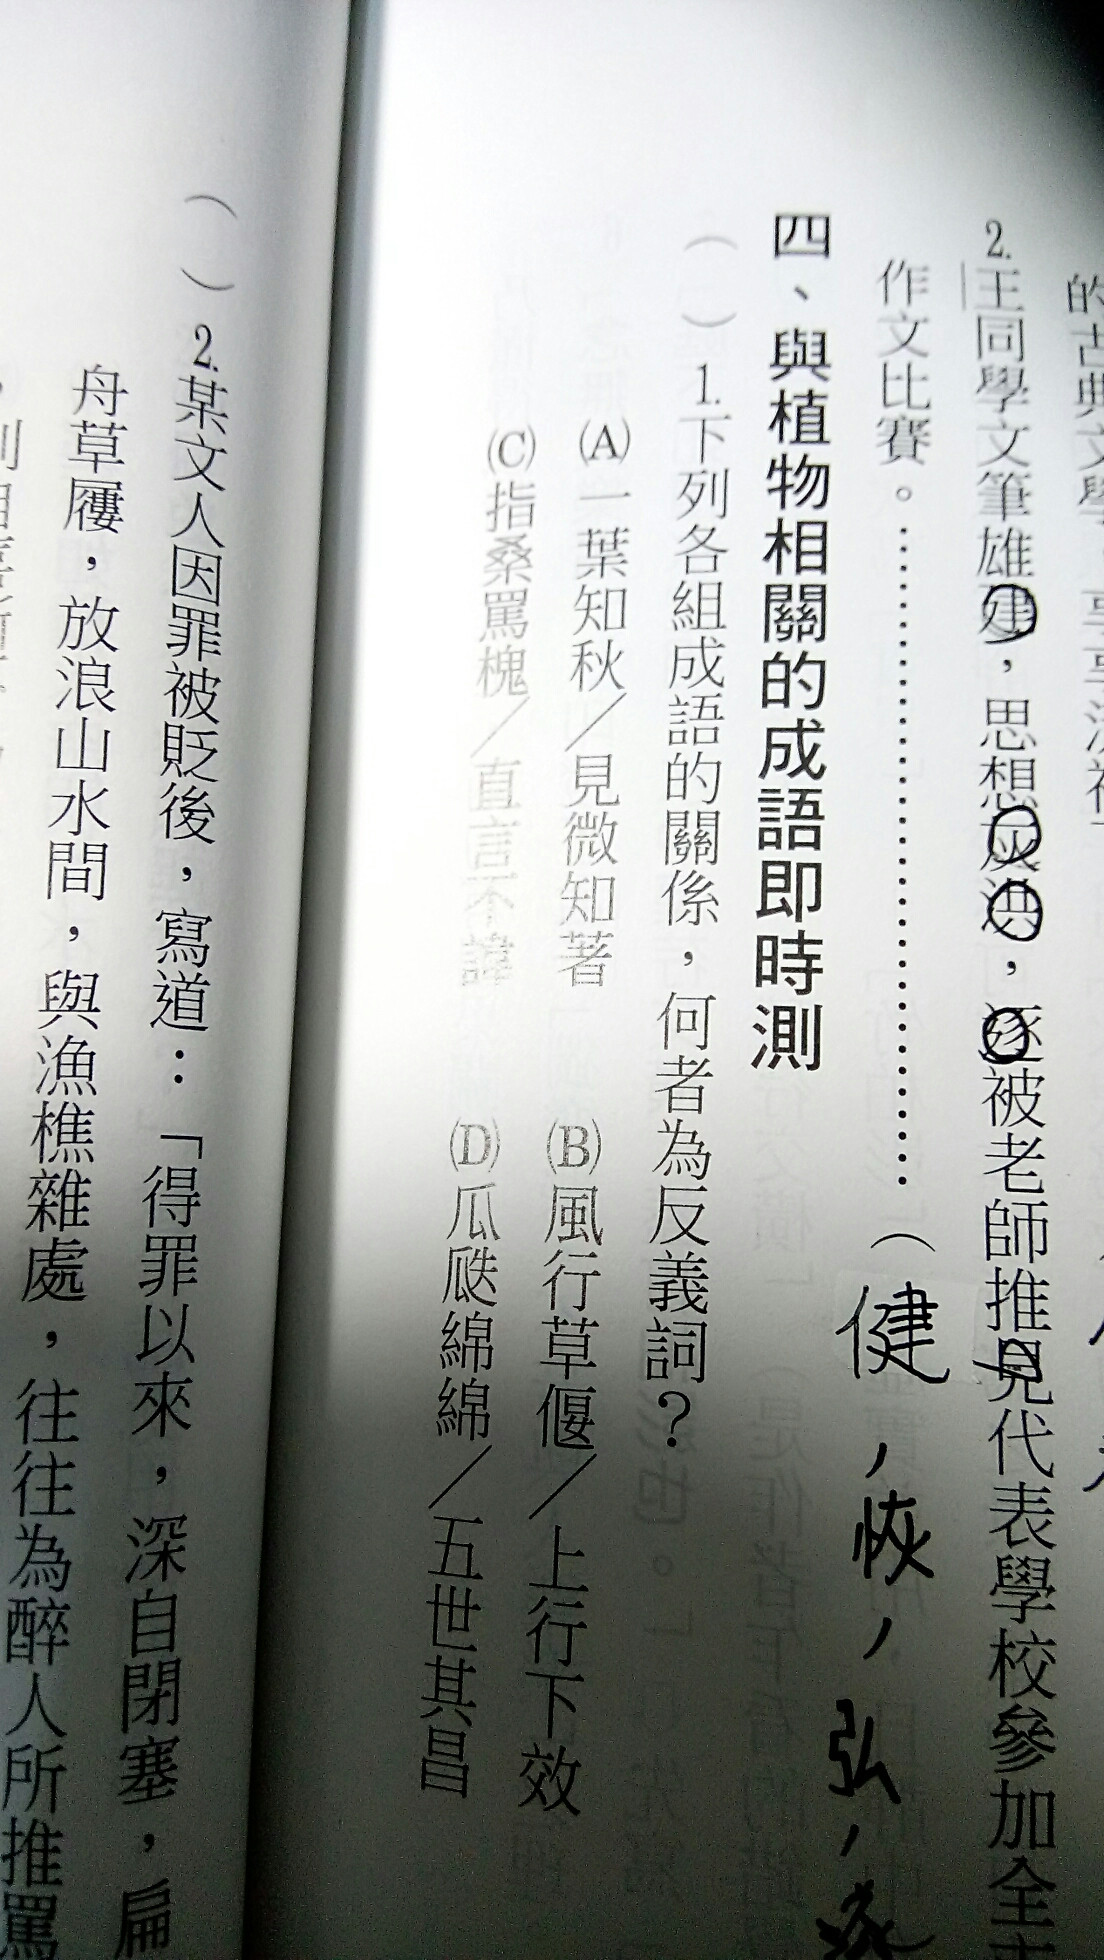 的古典文學，
2.王同學文筆雄建，思想灰洪，逐被老師推見代表學校參加全
作文比賽。……………………………………（健，恢，弘，
四、與植物相關的成語即時測
（　）1.下列各組成語的關係，何者為反義詞？
(A)一葉知秋／見微知著　(B)風行草偃／上行下效
(C)指桑罵槐／直言不諱　(D)瓜瓞綿綿／五世其昌
（　）2.某文人因罪被貶後，寫道：「得罪以來，深自閉塞，扁
舟草屨，放浪山水間，與漁樵雜處，往往為醉人所推罵